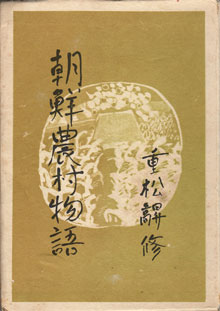 朝鮮農村物語
重松髜修